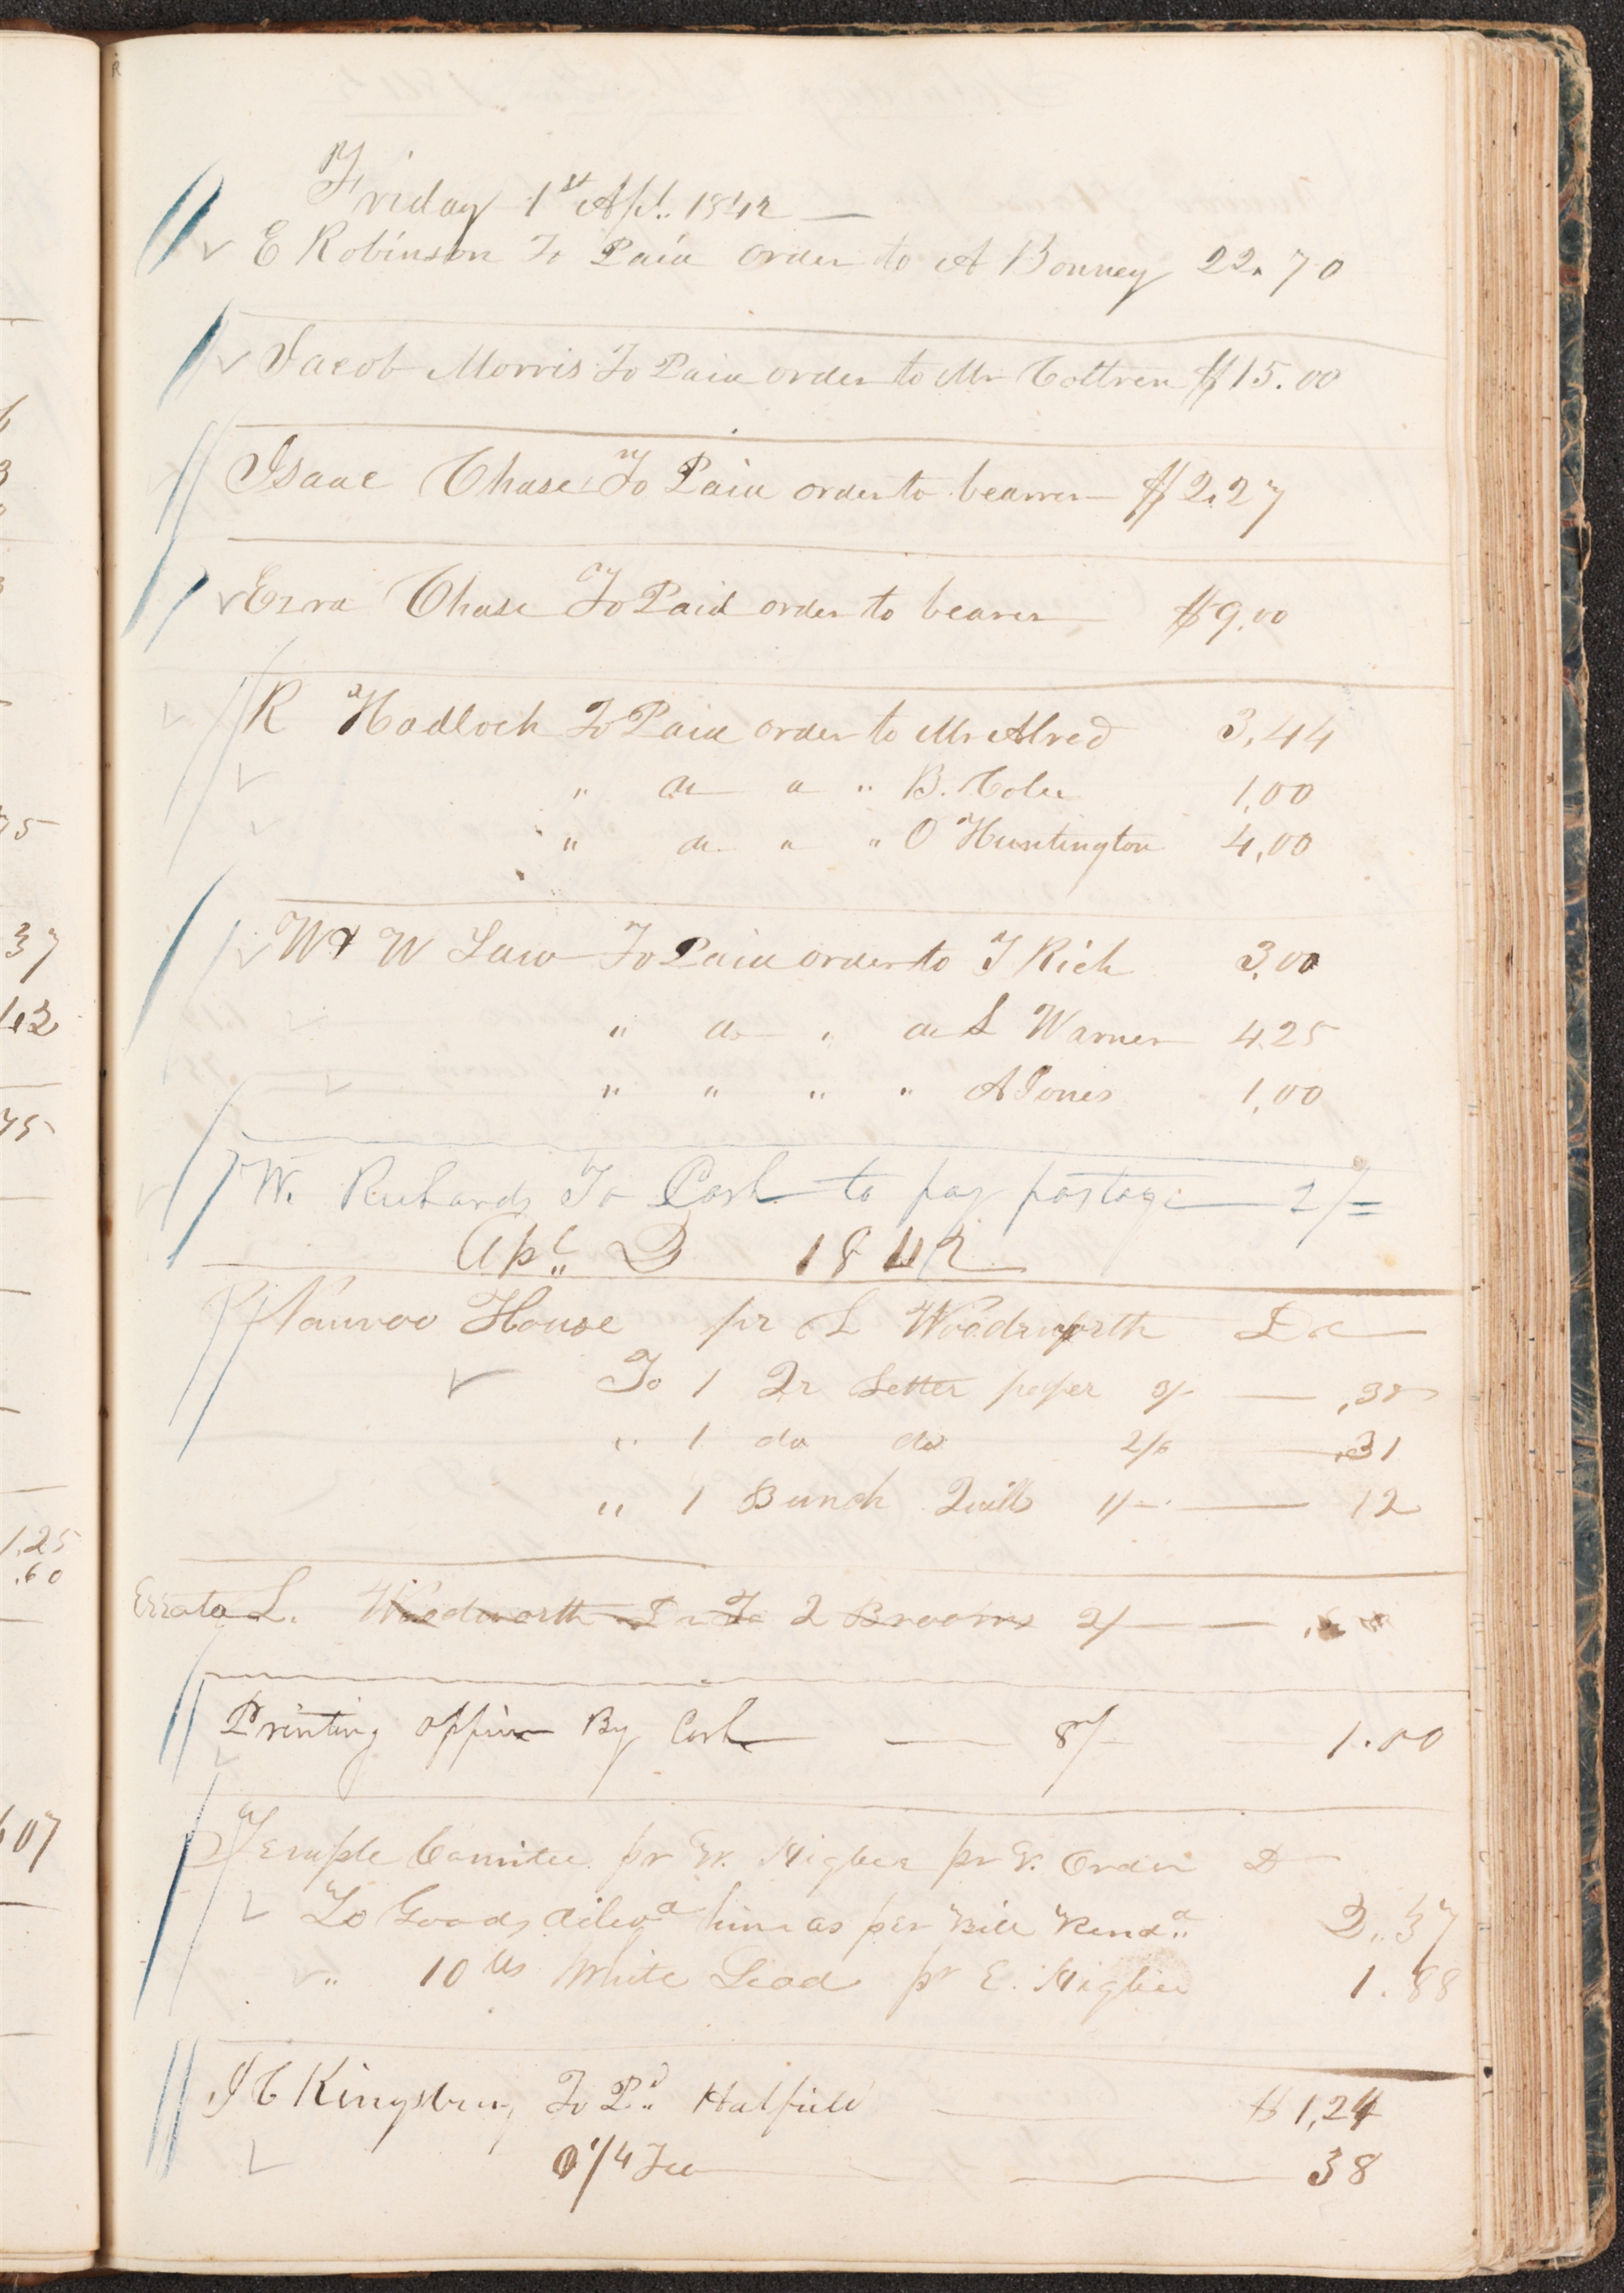 Friday 1st Apl. 1842 —
E Robinson To Paid order to A Bonney 22.70
Jacob Morris To Paid order to Mr Coltren $15.00
Isaac Chase To Paid order to bearer $2.27
Ezra Chase To Paid order to bearer $9.00
R Hadlock To Paid order to Mr Alred 3,44
" do " " B. Coles 1,00
" do " " O Huntington 4,00
W & W Law To Paid order to T Rich 3,00
" do " do S Warner 4.25
" " " " A Jones 1,00
W. Richards To Cash to pay postage — 2/=
Apl. D 1842
Nauvoo House pr L Woodworth Dr
To 1 Qr Letter paper 3/- — ,38
" 1 do do 2/6 — ,31
" 1 Bunch Quills 1/- — 12
Errata L. Woodworth Dr To 2 Brooms 2/ — —
Printing office By Cash — 8/ 1.00
Temple Comitee pr E. Higbee pr E. Order D
To Goods delivd him as per Bill Rendd 2.37
" 10 lbs White Lead pr E. Higbee 1.88
J C Kingsbury To Pd. Hatfield $1,24
0 1/4 Tea — 38
6
3
75
37
1.25
.60
607